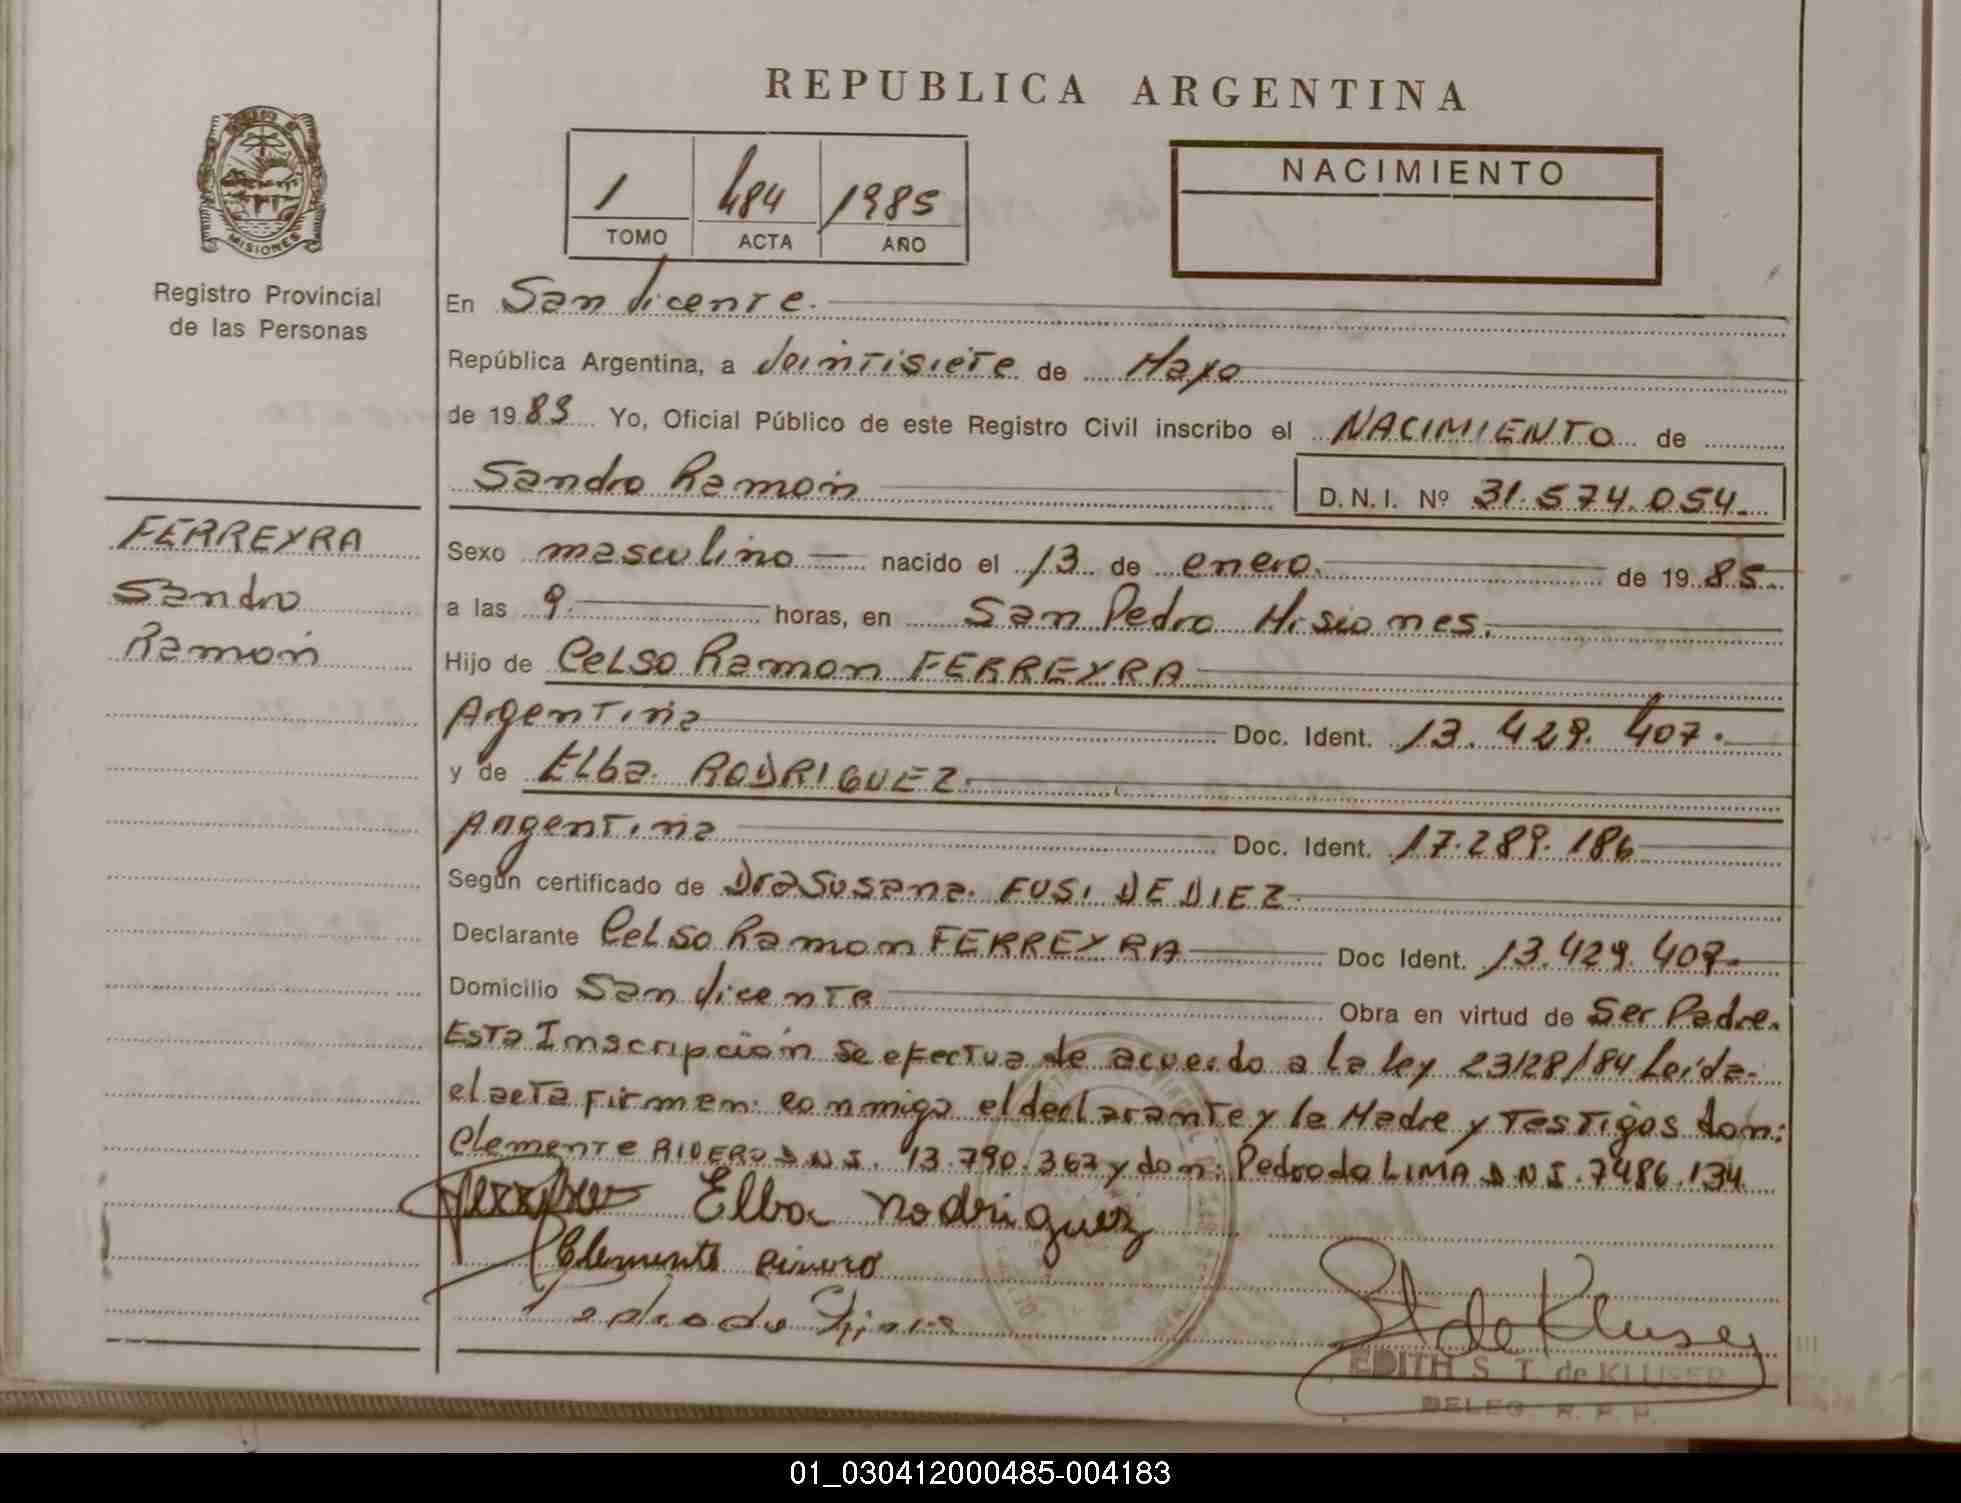 REPUBLICA ARGENTINA
MISIONES
Registro Provincial
de las Personas
1 484 1985
TOMO ACTA AÑO
NACIMIENTO
En San Vicente.
República Argentina, a Veintisiete de Mayo
de 1989 Yo, Oficial Público de este Registro Civil inscribo el NACIMIENTO de
Sandro Ramón D.N.I. Nº 31.574.054.
FERREYRA
Sandro
Ramón
Sexo masculino nacido el 13 de enero. de 1985.
a las 9. horas, en San Pedro Misiones.
Hijo de Celso Ramon FERREYRA
Argentina Doc. Ident. 13.429.407.
y de Elba RODRIGUEZ.
Argentina Doc. Ident. 17.289.186
Según certificado de Dra Susana. FUSI DE DIEZ
Declarante Celso Ramon FERREYRA Doc Ident. 13.429.407.
Domicilio San Vicente Obra en virtud de Ser Padre.
Esta Inscripción se efectua de acuerdo a la ley 23128/84 Leída
el acta firmen: conmigo el declarante y la Madre y Testigos don:
Clemente RIVERO D.N.I. 13.790.367 y don: Pedro do LIMA D.N.I. 7486.134
Elba Rodriguez
Clemente rivero
Pedro do Lima
St de Kluser
EDITH S. T. de KLUSER
DELEG. R. P. P.
01_030412000485-004183